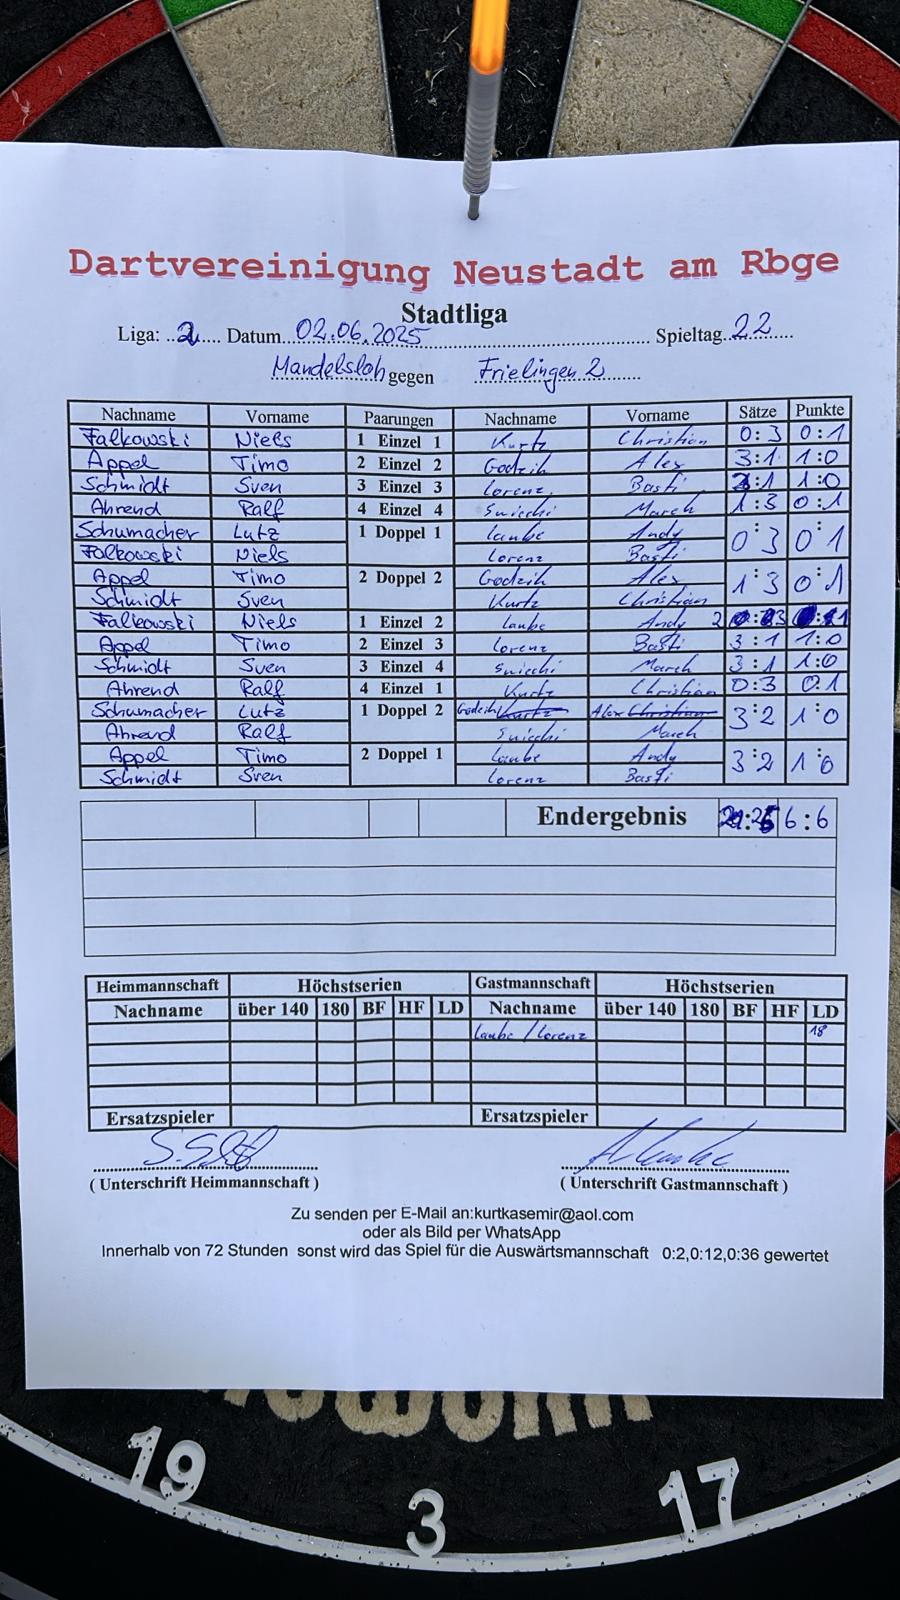 Dartvereinigung Neustadt am Rbge
Stadtliga
Liga: ..2.... Datum 02.06.2025 Spieltag 22
Mandelsloh gegen Frielingen 2
Nachname Vorname Paarungen Nachname Vorname Sätze Punkte
Falkowski Niels 1 Einzel 1 Kurtz Christian 0:3 0:1
Appel Timo 2 Einzel 2 Godzik Alex 3:1 1:0
Schmidt Sven 3 Einzel 3 Lorenz Basti :1 1:0
Ahrend Ralf 4 Einzel 4 March 1:3 0:1
Schumacher Lutz 1 Doppel 1 Laube Andy 0:3 0:1
Falkowski Niels Lorenz Basti
Appel Timo 2 Doppel 2 Godzik Alex 1:3 0:1
Schmidt Sven Kurtz Christian
Falkowski Niels 1 Einzel 2 Laube Andy
Appel Timo 2 Einzel 3 Lorenz Basti 3:1 1:0
Schmidt Sven 3 Einzel 4 March 3:1 1:0
Ahrend Ralf 4 Einzel 1 Kurtz Christian 0:3 0:1
Schumacher Lutz 1 Doppel 2 Godzik Kurtz Alex Christian 3:2 1:0
Ahrend Ralf March
Appel Timo 2 Doppel 1 Laube Andy 3:2 1:0
Schmidt Sven Lorenz Basti
Endergebnis 6:6
Heimmannschaft Höchstserien Gastmannschaft Höchstserien
Nachname über 140 180 BF HF LD Nachname über 140 180 BF HF LD
Laube / Lorenz 18
Ersatzspieler Ersatzspieler
( Unterschrift Heimmannschaft ) ( Unterschrift Gastmannschaft )
Zu senden per E-Mail an:kurtkasemir@aol.com
oder als Bild per WhatsApp
Innerhalb von 72 Stunden sonst wird das Spiel für die Auswärtsmannschaft 0:2,0:12,0:36 gewertet
19 3 17